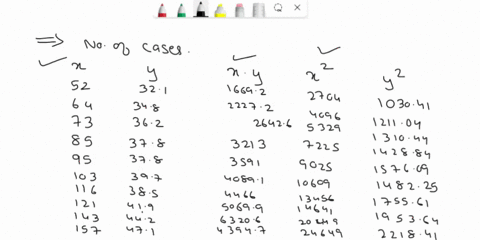 ⇒ No. of cases.
✓ ✓ ✓
x y x.y x² y²
52 32.1 1669.2 2704 1030.41
64 34.8 2227.2 4096 1211.04
73 36.2 2642.6 5329 1310.44
85 37.8 3213 7225 1428.84
95 37.8 3591 9025 1576.09
103 39.7 4089.1 10609 1482.25
116 38.5 4466 13456 1755.61
121 41.9 5069.9 14641 1953.64
143 44.2 6320.6 20449 2218.41
157 47.1 4394.7 24649